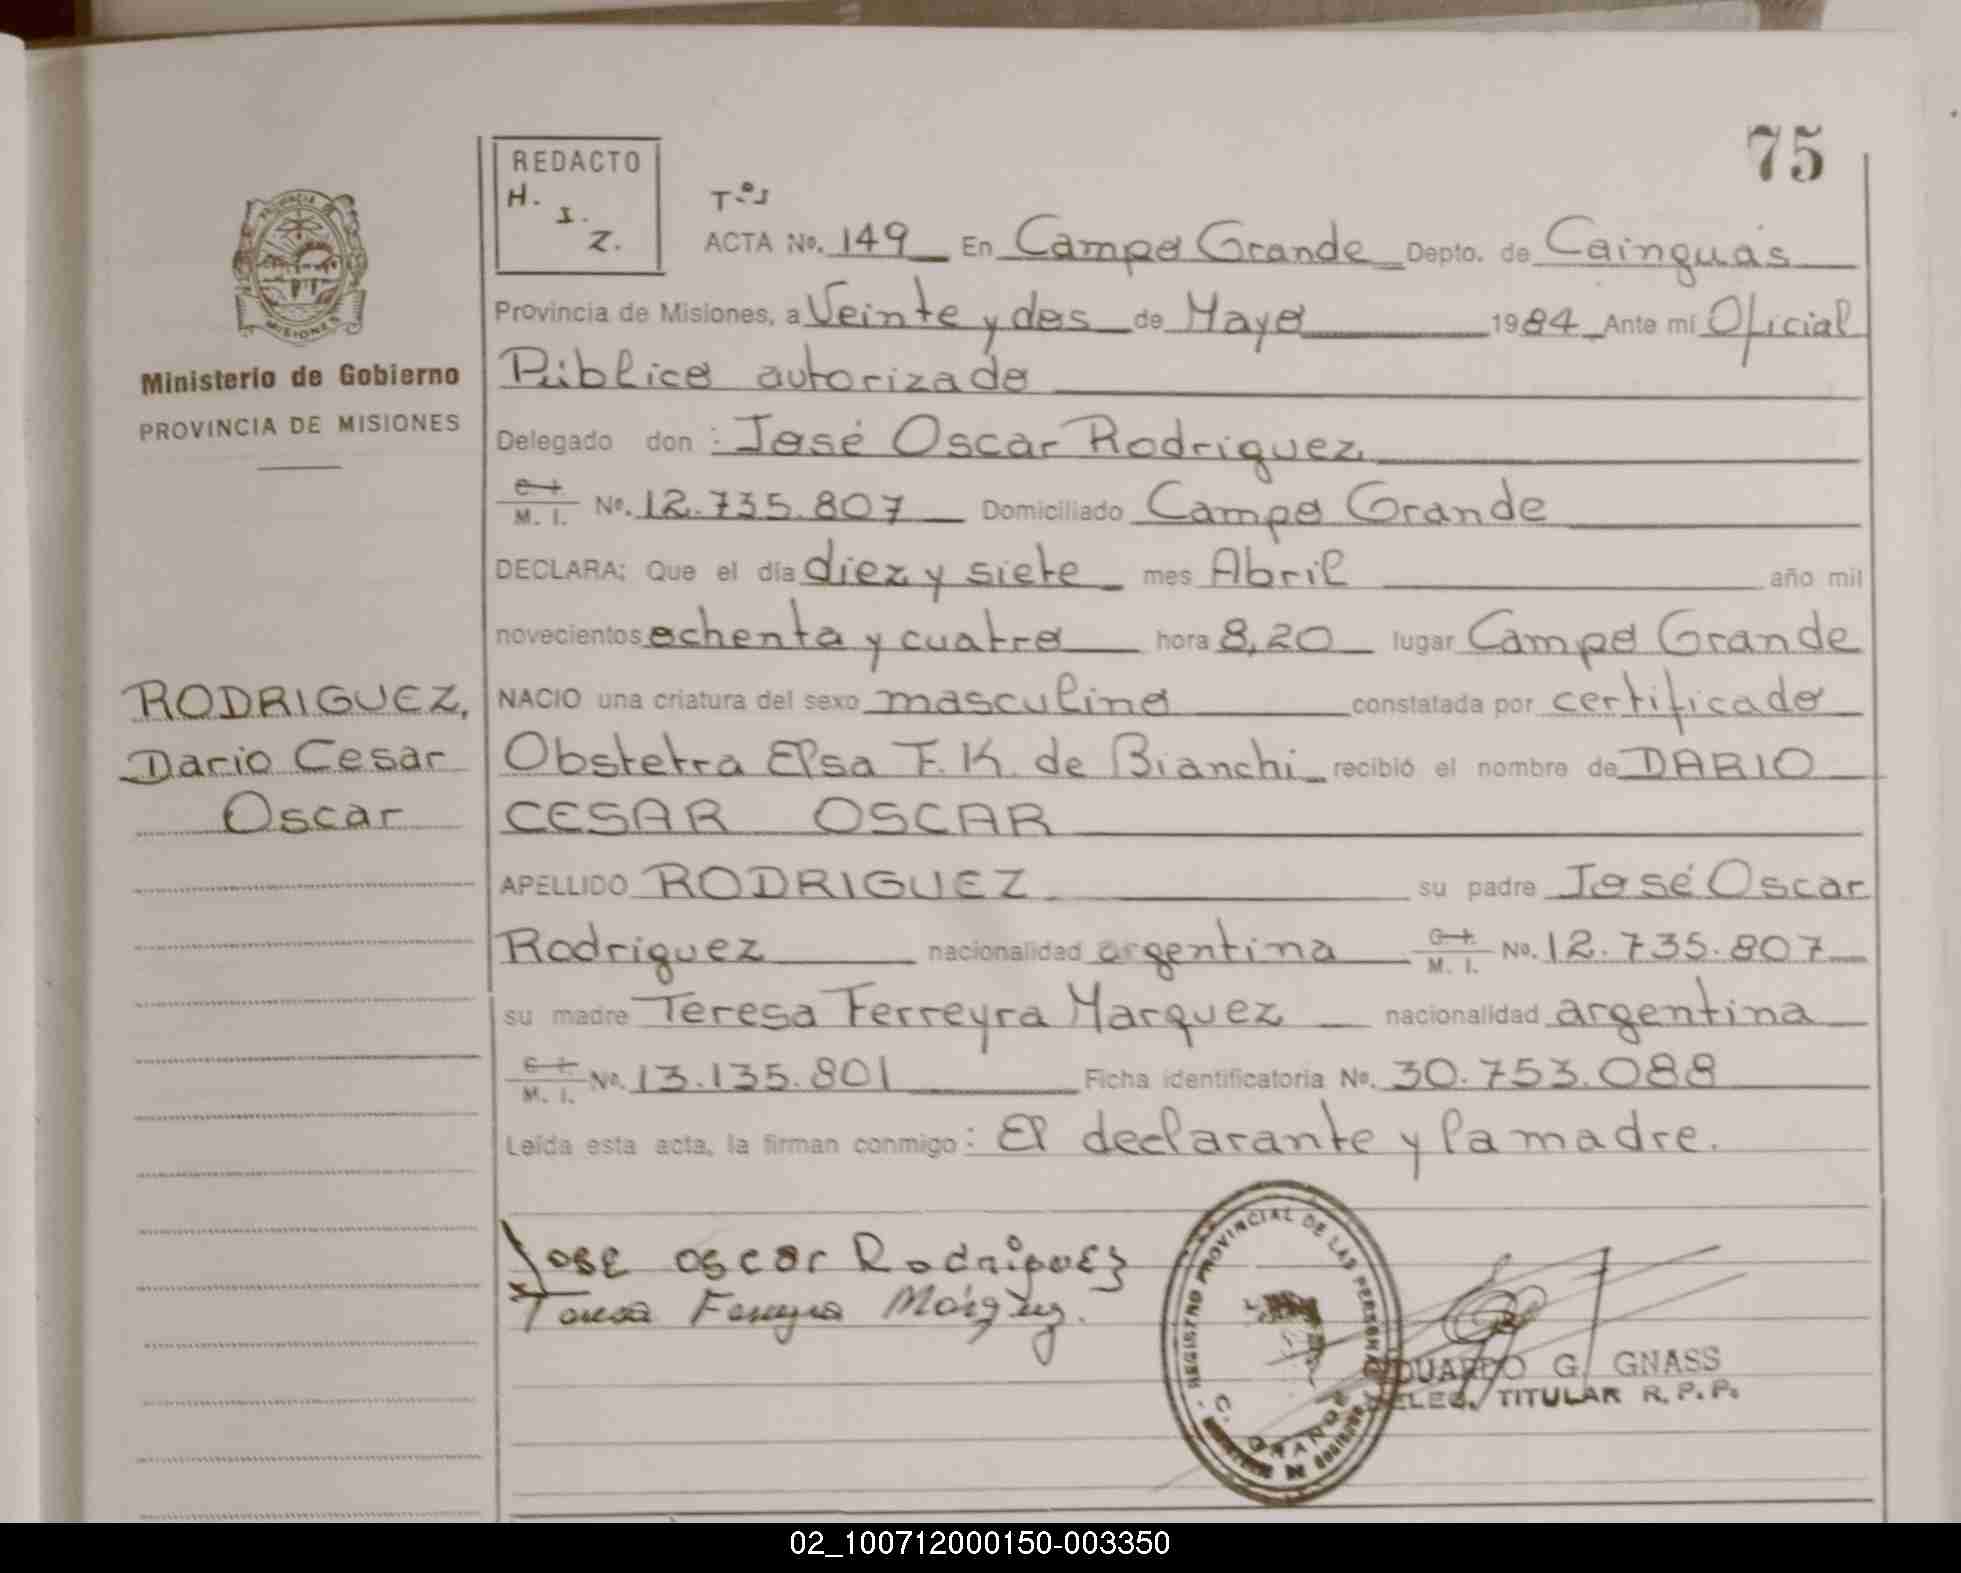 75
REDACTO
H. I. Z.
Tº I
ACTA No. 149 En Campo Grande Depto. de Cainguás
Provincia de Misiones, a Veinte y dos de Mayo 1984 Ante mí Oficial
Ministerio de Gobierno
PROVINCIA DE MISIONES
Público autorizado
Delegado don : José Oscar Rodriguez
C. I. M. I. No. 12.735.807 Domiciliado Campo Grande
DECLARA: Que el día diez y siete mes Abril año mil
novecientos ochenta y cuatro hora 8,20 lugar Campo Grande
RODRIGUEZ,
Dario Cesar
Oscar
NACIO una criatura del sexo masculino constatada por certificado
Obstetra Elsa F. K. de Bianchi recibió el nombre de DARIO
CESAR OSCAR
APELLIDO RODRIGUEZ su padre José Oscar
Rodriguez nacionalidad argentina C. I. M. I. No. 12.735.807
su madre Teresa Ferreyra Marquez nacionalidad argentina
C. I. M. I. No. 13.135.801 Ficha identificatoria No. 30.753.088
Leída esta acta, la firman conmigo: El declarante y la madre.
Jose oscar Rodriguez
Teresa Ferreyra Márquez.
REGISTRO PROVINCIAL DE LAS PERSONAS
C. GRANDE
EDUARDO G. GNASS
DELEG. TITULAR R.P.P.
PROVINCIA DE
MISIONES
02_100712000150-003350